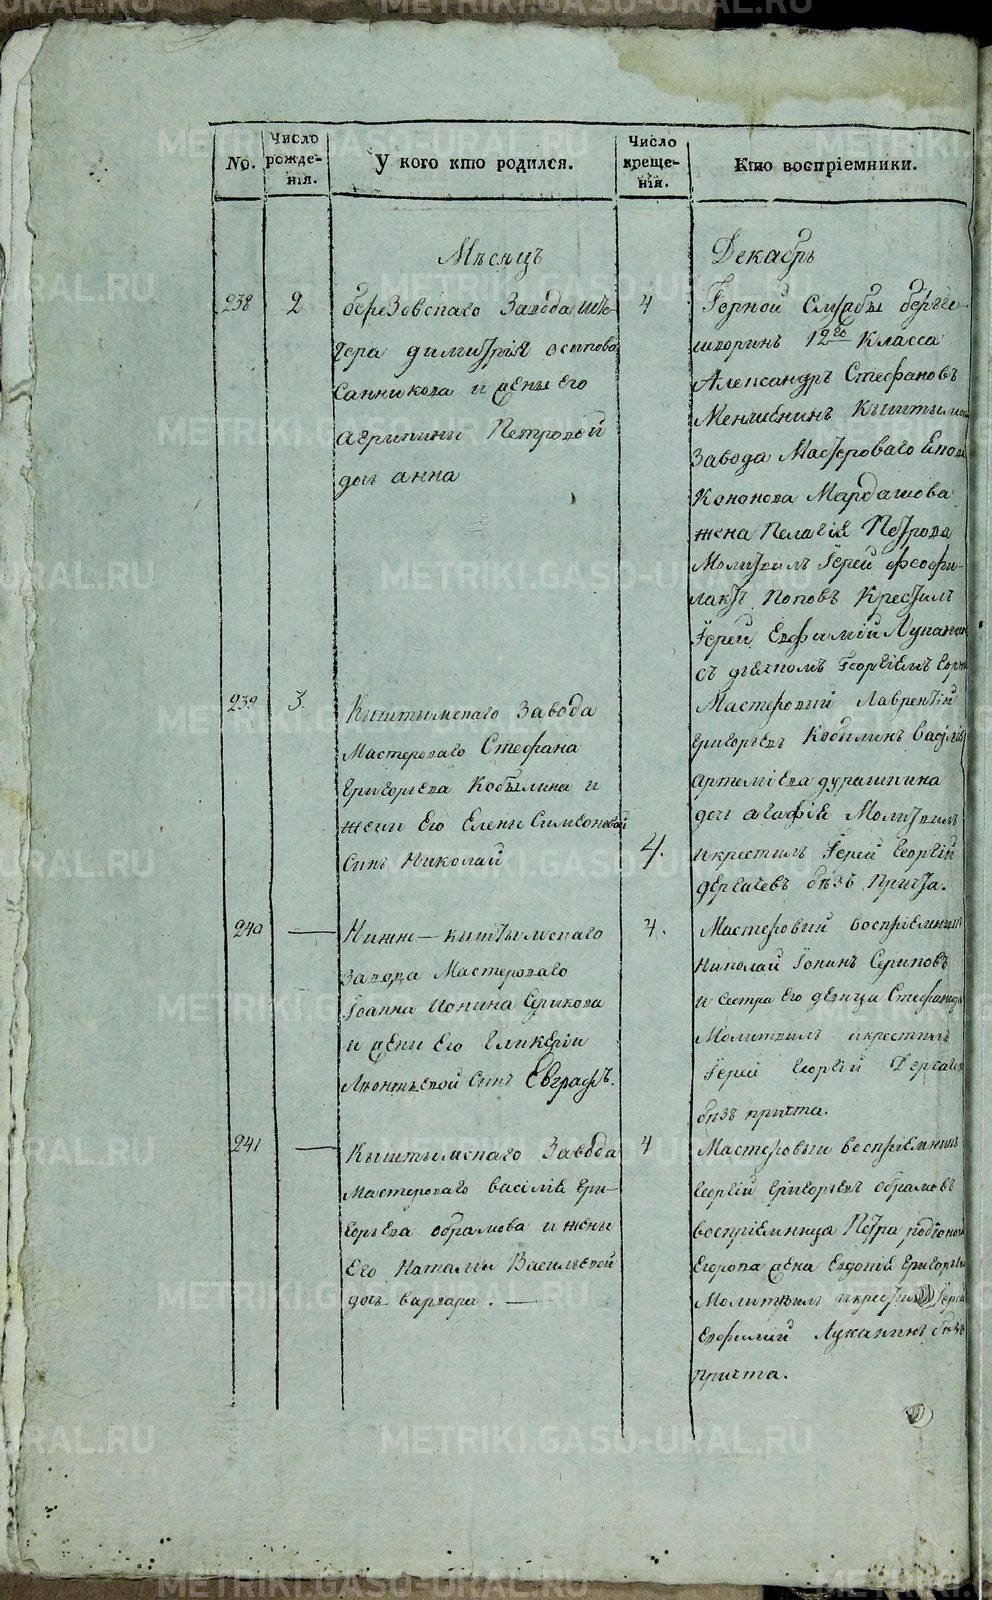 METRIKI.GASO-URAL.RU
No.
Число рожденія.
У кого кто родился.
Число крещенія.
Кто воспріемники.
Мѣсяцъ
Декабрь
238
2
березовскаго Завода
дмитрія осипова
Санникова и жены его
агрипины Петровой
дочь анна
4
Горной Службы бергге
шворинъ 12го Класса
Александръ Стефановъ
Кыштымск
Завода Мастероваго
Кононова Мардашова
жена Пелагія Петрова
Молитвилъ Іерей феофи-
лактъ Поповъ Крестилъ
Іерей Евфимій Луканин
съ дьячкомъ Георгіемъ
239
3.
Кыштымскаго завода
Мастероваго Стефана
Григорьева Кобылина и
жены Его Елены Симеоновой
Сынъ Николай
4.
Мастеровий Лаврентій
Григорьевъ Кобилинъ Василія
Артеміева дурашнина
дочь агафія Молитвилъ
икрестилъ Іерей Георгій
дергачевъ бѣзъ Причта.
240
—
Нижне-кыштымскаго
завода Мастероваго
Іоанна Ионина Серикова
и жены Его Гликеріи
Леонтьевой Сынъ Евграфъ.
4.
Мастеровий воспріемникъ
Николай Іонинъ Сериковъ
и Сестра Его девица Стефанида
Молитвилъ икрестилъ
Іерей Георгій Дергачев
бѣзъ причта.
241
—
Кыштымскаго Завода
Мастероваго василія Гри-
горьева абрамова и жены
Его Наталіи Васильевой
дочь варвара. —
4
Мастеровый воспріемникъ
Георгій Григорьевъ абрамовъ
воспріемница Петра родіонова
Егорова жена Евдокія Григорьева
Молитвилъ икрестилъ Іерей
Евфимій Луканинъ бѣзъ
причта.